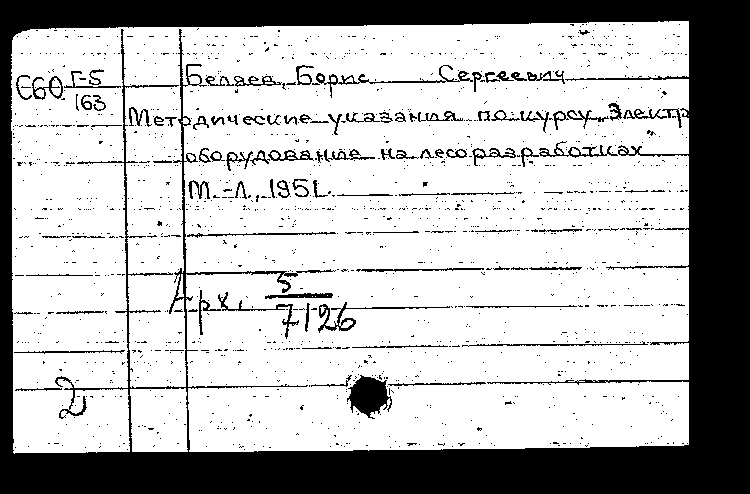 С60 Г-5/163
Беляев, Борис Сергеевич
Методические указания по курсу „Электр
оборудование на лесоразработках"
М.-Л., 1951.
Арх. 5/7126
2